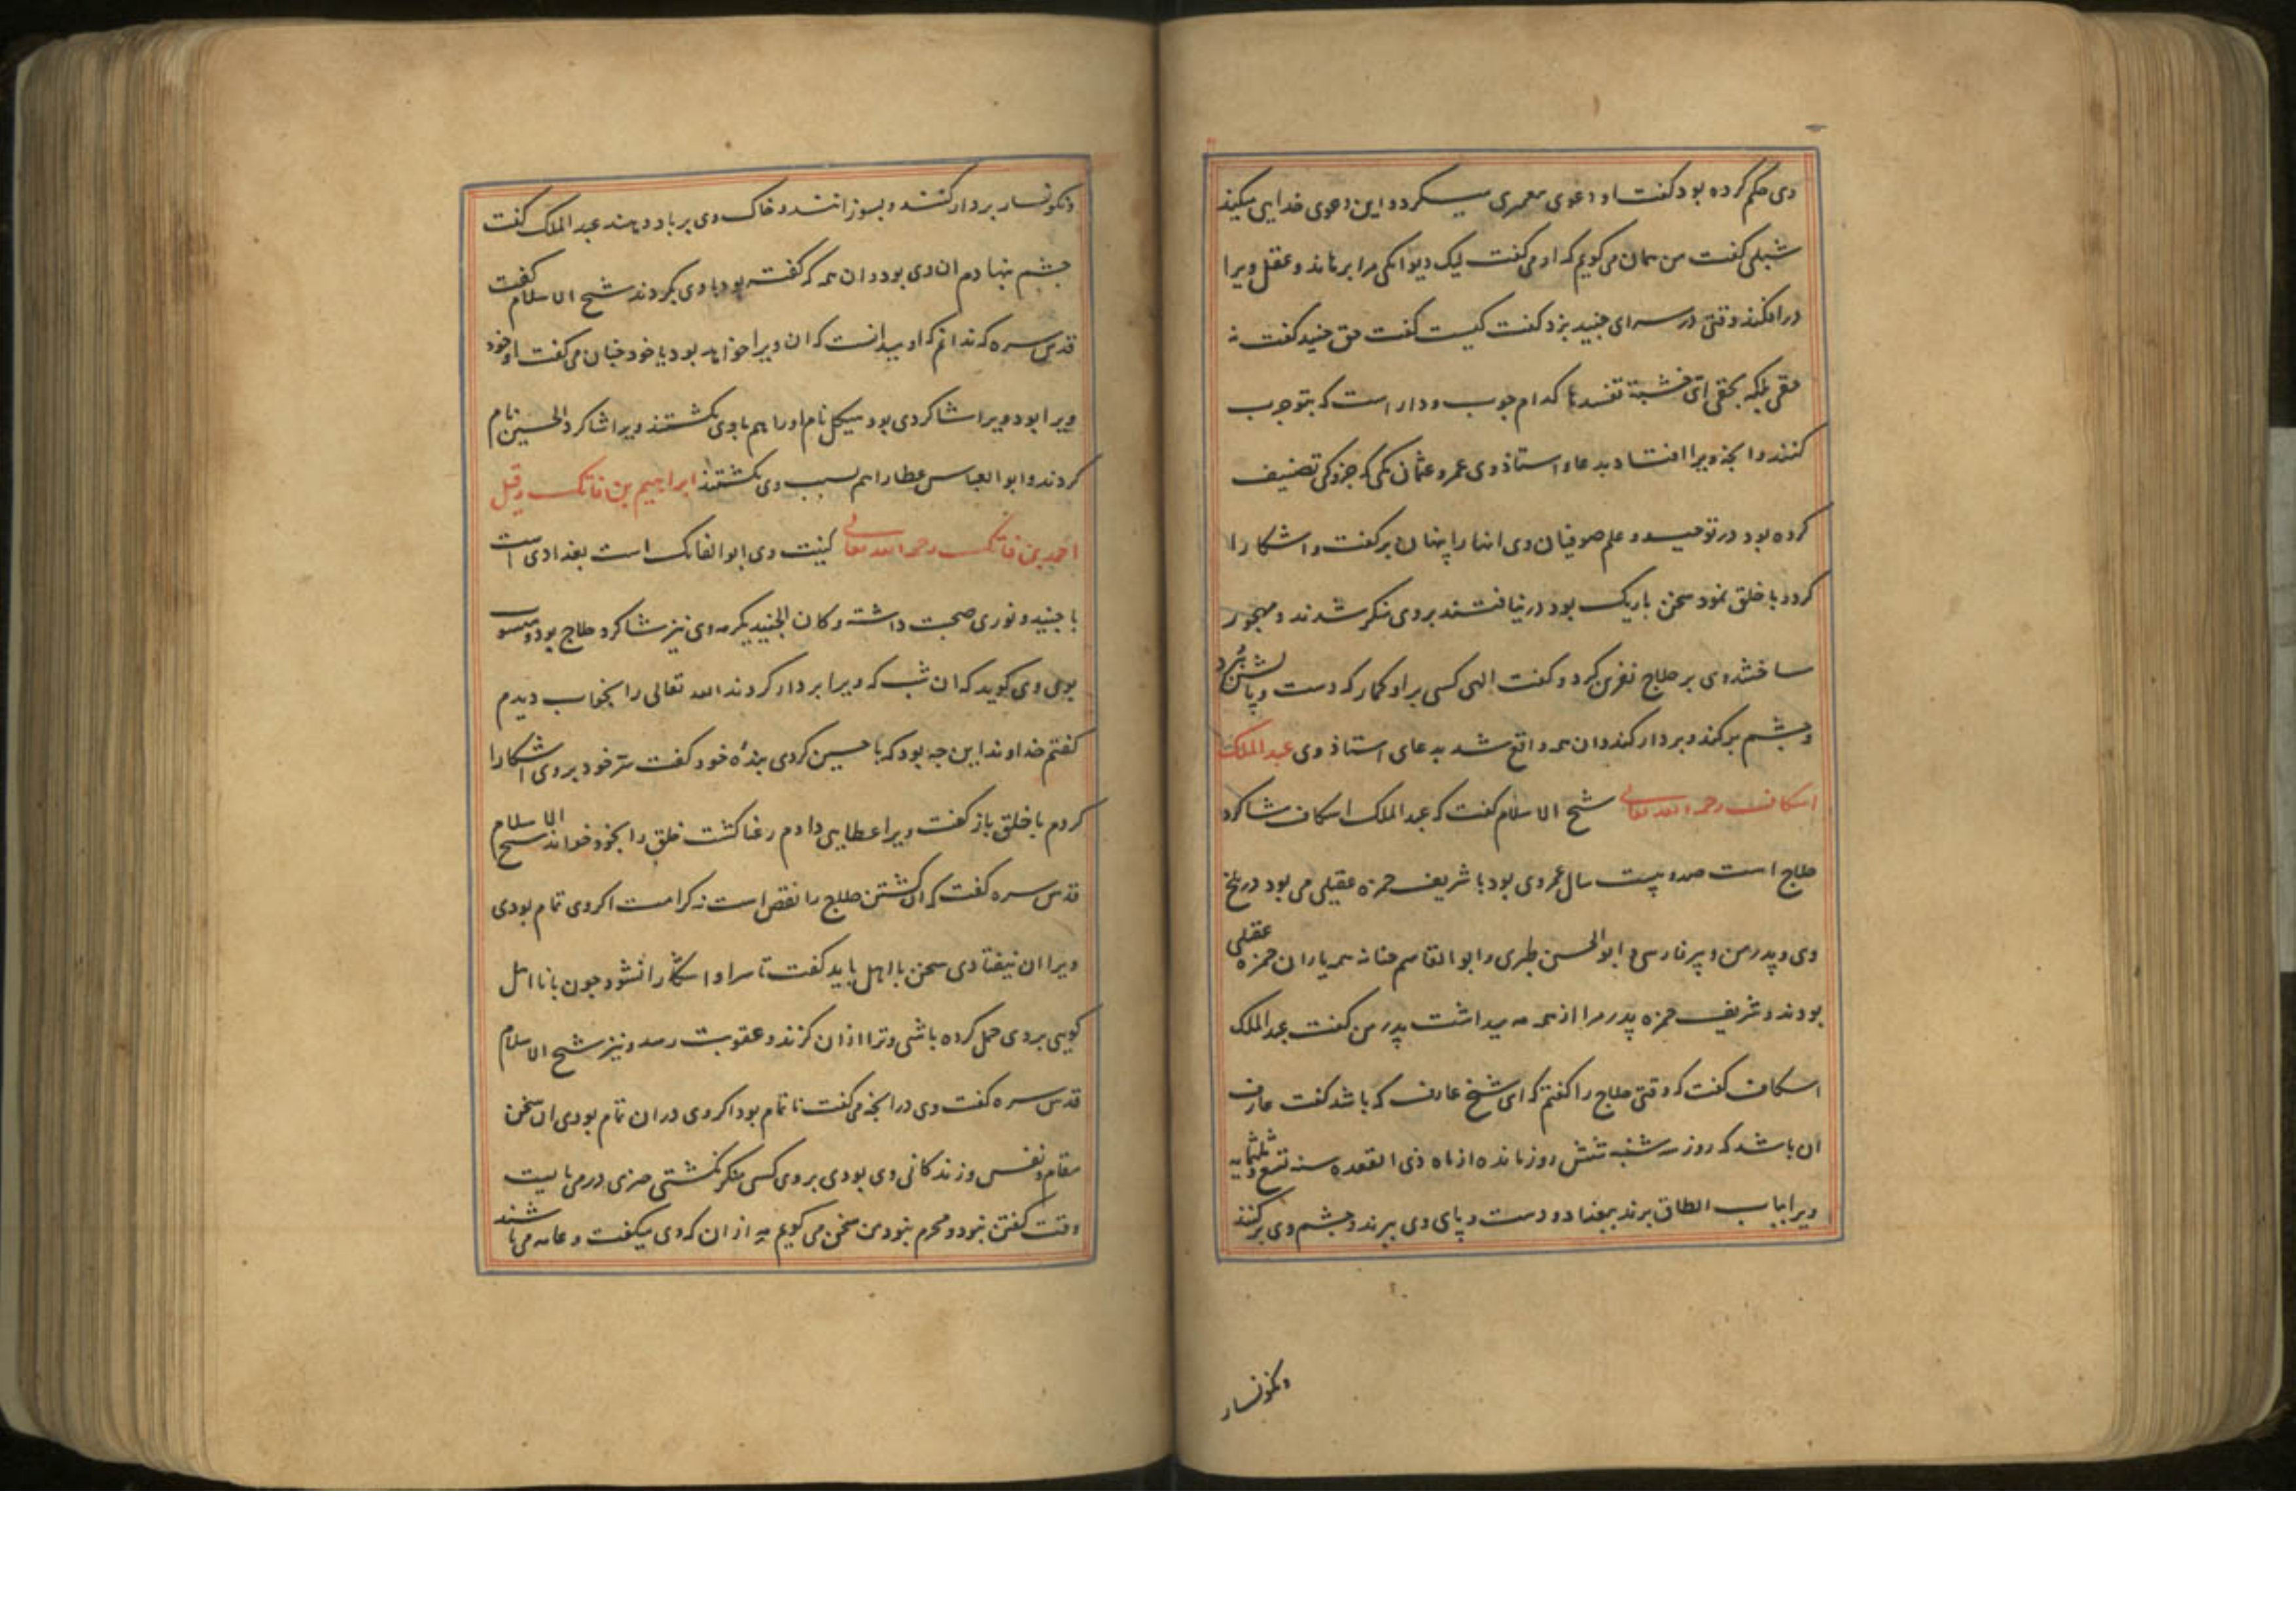 وی حکم کرده بود گفت او دعوی معمری میکرد و این دعوی خدایی میکند
شبلی گفت من همان می گویم که او می گفت لیک دیوانگی مرا برهاند و عقل ویرا
درافکند وقتی در سرای جنید بزد گفت کیست گفت حق جنید گفت نه
حقی بلکه بحقی ای خشبة تفسدها کدام چوب و دار است که بتو چرب
کنند و آنچه ویرا افتاد بدعاء استاذ وی عمرو عثمان مکی که جزوکی تصنیف
کرده بود در توحید و علم صوفیان وی انها را پنهان برگفت و اشکارا
کرد و با خلق نمود سخن باریک بود درنیافتند بروی منکر شدند و مهجور
ساختند وی بر حلاج نفرین کرد و گفت الهی کسی بر او گمار که دست و پایش ببرد
و چشم برکند و بردار کند و ان همه واقع شد بدعای استاذ وی عبد الملک
اسکاف رحمه الله تعالی شیخ الاسلام گفت که عبد الملک اسکاف شاگرد
حلاج است صد و بیست سال عمر وی بود با شریف حمزه عقیلی می بود در بلخ
وی و پدر من و پیر فارسی و ابو الحسن طبری و ابو القاسم حنانه همه یاران حمزه عقیلی
بودند و شریف حمزه پدر مرا از همه مه میداشت پدر من گفت عبد الملک
اسکاف گفت که وقتی حلاج را گفتم که ای شیخ عارف که باشد گفت عارف
ان باشد که روز سه شنبه شش روز مانده از ماه ذی القعده سنه تسع و ثلثمایه
ویرا بباب الطاق برند ببغداد و دست و پای وی ببرند و چشم وی برکنند
ونگونسار
ونگونسار بردار کنند و بسوزانند و خاک وی بر باد دهند عبد الملک گفت
چشم بنهادم ان وی بود و ان همه که گفته بود با وی بکردند شیخ الاسلام گفت
قدس سره که ندانم که او میدانست که ان ویرا خواهد بود یا خود چنان می گفت او خود
ویرا بود و ویرا شاگردی بود هیکل نام او را هم با وی بکشتند ویرا شاگرد الحسین نام
کردند و ابو العباس عطا را هم بسبب وی بکشتند ابراهیم بن فاتک و قیل
احمد بن فاتک رحمه الله تعالی کنیت وی ابو الفاتک است بغدادی است
با جنید و نوری صحبت داشته و کان الجنید یکرمه وی نیز شاگرد حلاج بود و منسوب
بوی وی گوید که ان شب که ویرا بردار کردند الله تعالی را بخواب دیدم
گفتم خداوندا این چه بود که با حسین کردی بنده خود گفت سر خود بروی اشکارا
کردم با خلق باز گفت ویرا عطایی دادم رعنا گشت خلق را بخود خواند شیخ الاسلام
قدس سره گفت که ان کشتن حلاج را نقص است نه کرامت اگر وی تمام بودی
ویرا ان نیفتادی سخن با اهل باید گفت تا سر او اشکارا نشود چون با نااهل
گویی بر وی حمل کرده باشی و ترا از ان گزند و عقوبت رسد و نیز شیخ الاسلام
قدس سره گفت وی در انچه می گفت ناتمام بود اگر وی در ان تمام بودی ان سخن
مقام و نفس و زندگانی وی بودی بر وی کسی منکر نگشتی چیزی درمی بایست
وقت گفتن نبود و محرم نبود من سخن می گویم مه از ان که وی میگفت و عامه می باشند